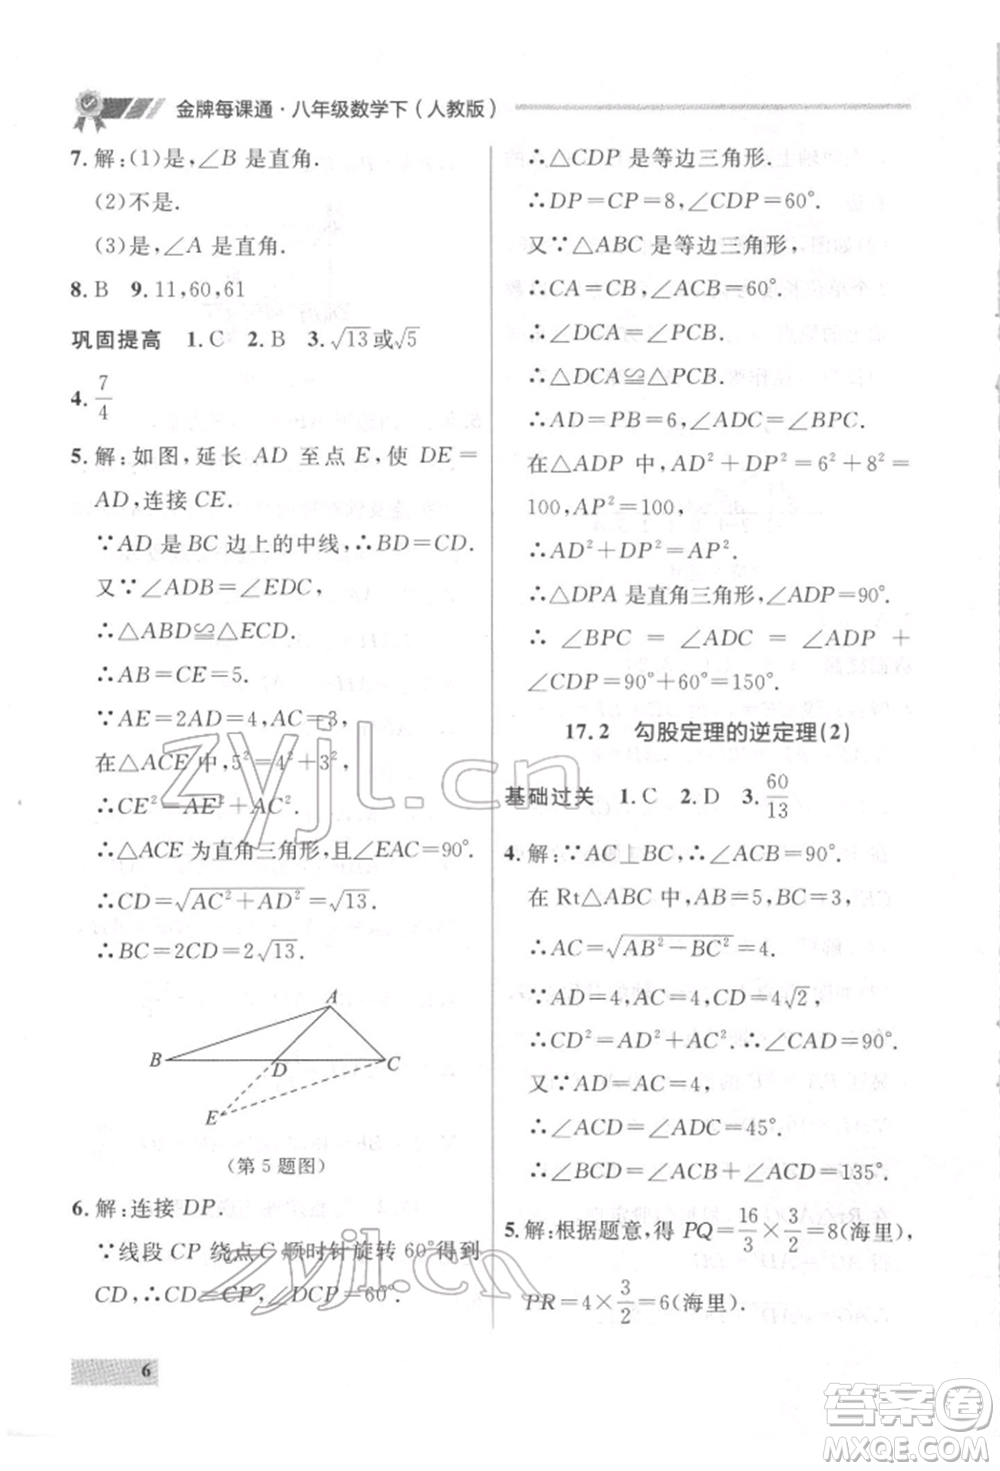 金牌每课通·八年级数学下(人教版)
7.解:(1)是,∠B 是直角.
(2)不是.
(3)是,∠A 是直角.
8.B 9.11,60,61
巩固提高 1.C 2.B 3.√13或√5
4.7/4
5.解:如图,延长 AD 至点 E,使 DE=
AD,连接 CE.
∵AD 是 BC 边上的中线,∴BD=CD.
又∵∠ADB=∠EDC,
∴△ABD≌△ECD.
∴AB=CE=5.
∵AE=2AD=4,AC=3,
在△ACE 中,5²=4²+3²,
∴CE²=AE²+AC².
∴△ACE 为直角三角形,且∠EAC=90°.
∴CD=√(AC²+AD²)=√13.
∴BC=2CD=2√13.
A
B
D
C
E
(第 5 题图)
6.解:连接 DP.
∵线段 CP 绕点 C 顺时针旋转 60°得到
CD,∴CD=CP,∠DCP=60°.
∴△CDP 是等边三角形.
∴DP=CP=8,∠CDP=60°.
又∵△ABC 是等边三角形,
∴CA=CB,∠ACB=60°.
∴∠DCA=∠PCB.
∴△DCA≌△PCB.
∴AD=PB=6,∠ADC=∠BPC.
在△ADP 中,AD²+DP²=6²+8²=
100,AP²=100,
∴AD²+DP²=AP².
∴△DPA 是直角三角形,∠ADP=90°.
∴∠BPC=∠ADC=∠ADP+
∠CDP=90°+60°=150°.
17.2 勾股定理的逆定理(2)
基础过关 1.C 2.D 3.60/13
4.解:∵AC⊥BC,∴∠ACB=90°.
在 Rt△ABC 中,AB=5,BC=3,
∴AC=√(AB²-BC²)=4.
∵AD=4,AC=4,CD=4√2,
∴CD²=AD²+AC².∴∠CAD=90°.
又∵AD=AC=4,
∴∠ACD=∠ADC=45°.
∴∠BCD=∠ACB+∠ACD=135°.
5.解:根据题意,得 PQ=16/3×3/2=8(海里),
PR=4×3/2=6(海里).
6
zyjl.cn
zyjl.cn
答案圈
MXQE.COM